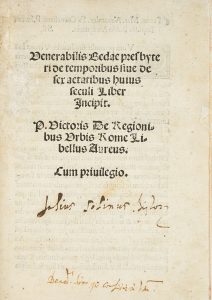 Venerabilis Bedae presbyte
ri de temporibus siue de
sex aetatibus huius
seculi Liber
Incipit.
P. Victoris De Regioni
bus Vrbis Rome Li
bellus Aureus.
Cum priuilegio.
Julius Solinus